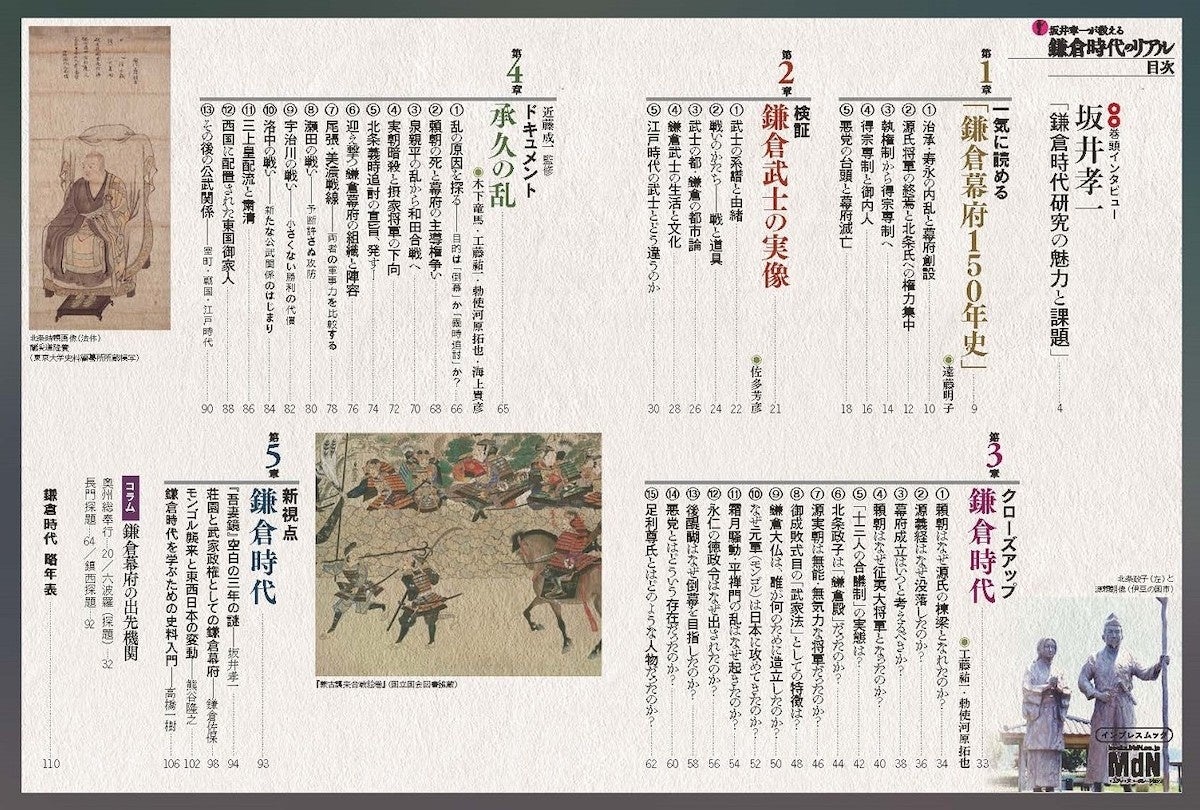 坂井孝一が教える
鎌倉時代のリアル
目次
巻頭インタビュー
坂井孝一
「鎌倉時代研究の魅力と課題」 4
第1章
一気に読める
「鎌倉幕府150年史」 9
遠藤明子
① 治承・寿永の内乱と幕府創設 10
② 源氏将軍の終焉と北条氏への権力集中 12
③ 執権制から得宗専制へ 14
④ 得宗専制と御内人 16
⑤ 悪党の台頭と幕府滅亡 18
第2章
検証
鎌倉武士の実像 21
佐多芳彦
① 武士の系譜と由緒 22
② 戦いのかたち――戦と道具 24
③ 武士の都 鎌倉の都市論 26
④ 鎌倉武士の生活と文化 28
⑤ 江戸時代の武士とどう違うのか 30
第4章
近藤成一 監修
ドキュメント
承久の乱 65
木下竜馬・工藤祐一・勅使河原拓也・海上貴彦
① 乱の原因を探る――目的は「倒幕」か「義時追討」か? 66
② 頼朝の死と幕府の主導権争い 68
③ 泉親平の乱から和田合戦へ 70
④ 実朝暗殺と摂家将軍の下向 72
⑤ 北条義時追討の宣旨、発す! 74
⑥ 迎え撃つ鎌倉幕府の組織と陣容 76
⑦ 尾張・美濃戦線――両者の軍事力を比較する 78
⑧ 瀬田の戦い――予断許さぬ攻防 80
⑨ 宇治川の戦い――小さくない勝利の代償 82
⑩ 洛中の戦い――新たな公武関係のはじまり 84
⑪ 三上皇配流と粛清 86
⑫ 西国に配置された東国御家人 88
⑬ その後の公武関係――室町・戦国・江戸時代 90
北条時頼画像(法体)
(東京大学史料編纂所所蔵模写)
第3章
クローズアップ
鎌倉時代 33
工藤祐一・勅使河原拓也
① 頼朝はなぜ源氏の棟梁となれたのか? 34
② 源義経はなぜ没落したのか? 36
③ 幕府成立はいつと考えるべきか? 38
④ 頼朝はなぜ征夷大将軍となったのか? 40
⑤ 「十三人の合議制」の実態は? 42
⑥ 北条政子は「鎌倉殿」だったのか? 44
⑦ 源実朝は無能・無気力な将軍だったのか? 46
⑧ 御成敗式目の「武家法」としての特徴は? 48
⑨ 鎌倉大仏は、誰が何のために造立したのか? 50
⑩ なぜ元軍(モンゴル)は日本に攻めてきたのか? 52
⑪ 霜月騒動・平禅門の乱はなぜ起きたのか? 54
⑫ 永仁の徳政令はなぜ出されたのか? 56
⑬ 後醍醐はなぜ倒幕を目指したのか? 58
⑭ 悪党とはどういう存在だったのか? 60
⑮ 足利尊氏とはどのような人物だったのか? 62
北条政子(左)と
源頼朝像(伊豆の国市)
『蒙古襲来合戦絵巻』(国立国会図書館蔵)
第5章
新視点
鎌倉時代 93
『吾妻鏡』空白の三年の謎――坂井孝一 94
荘園と武家政権としての鎌倉幕府――鎌倉佐保 98
モンゴル襲来と東西日本の変動――熊谷隆之 102
鎌倉時代を学ぶための史料入門――高橋一樹 106
コラム 鎌倉幕府の出先機関
奥州総奉行―20/六波羅(探題)―32
長門探題―64/鎮西探題―92
鎌倉時代 略年表 110
インプレスムック
books.MdN.co.jp
MdN